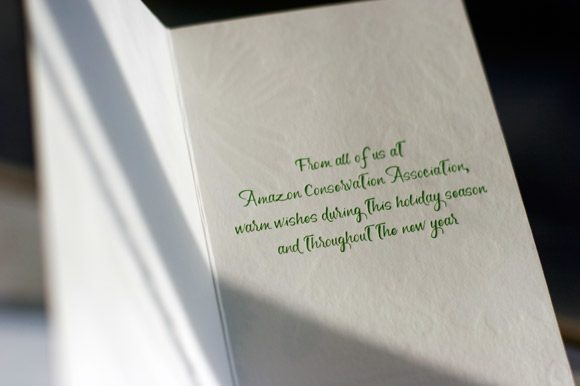 From all of us at
Amazon Conservation Association,
warm wishes during this holiday season
and throughout the new year